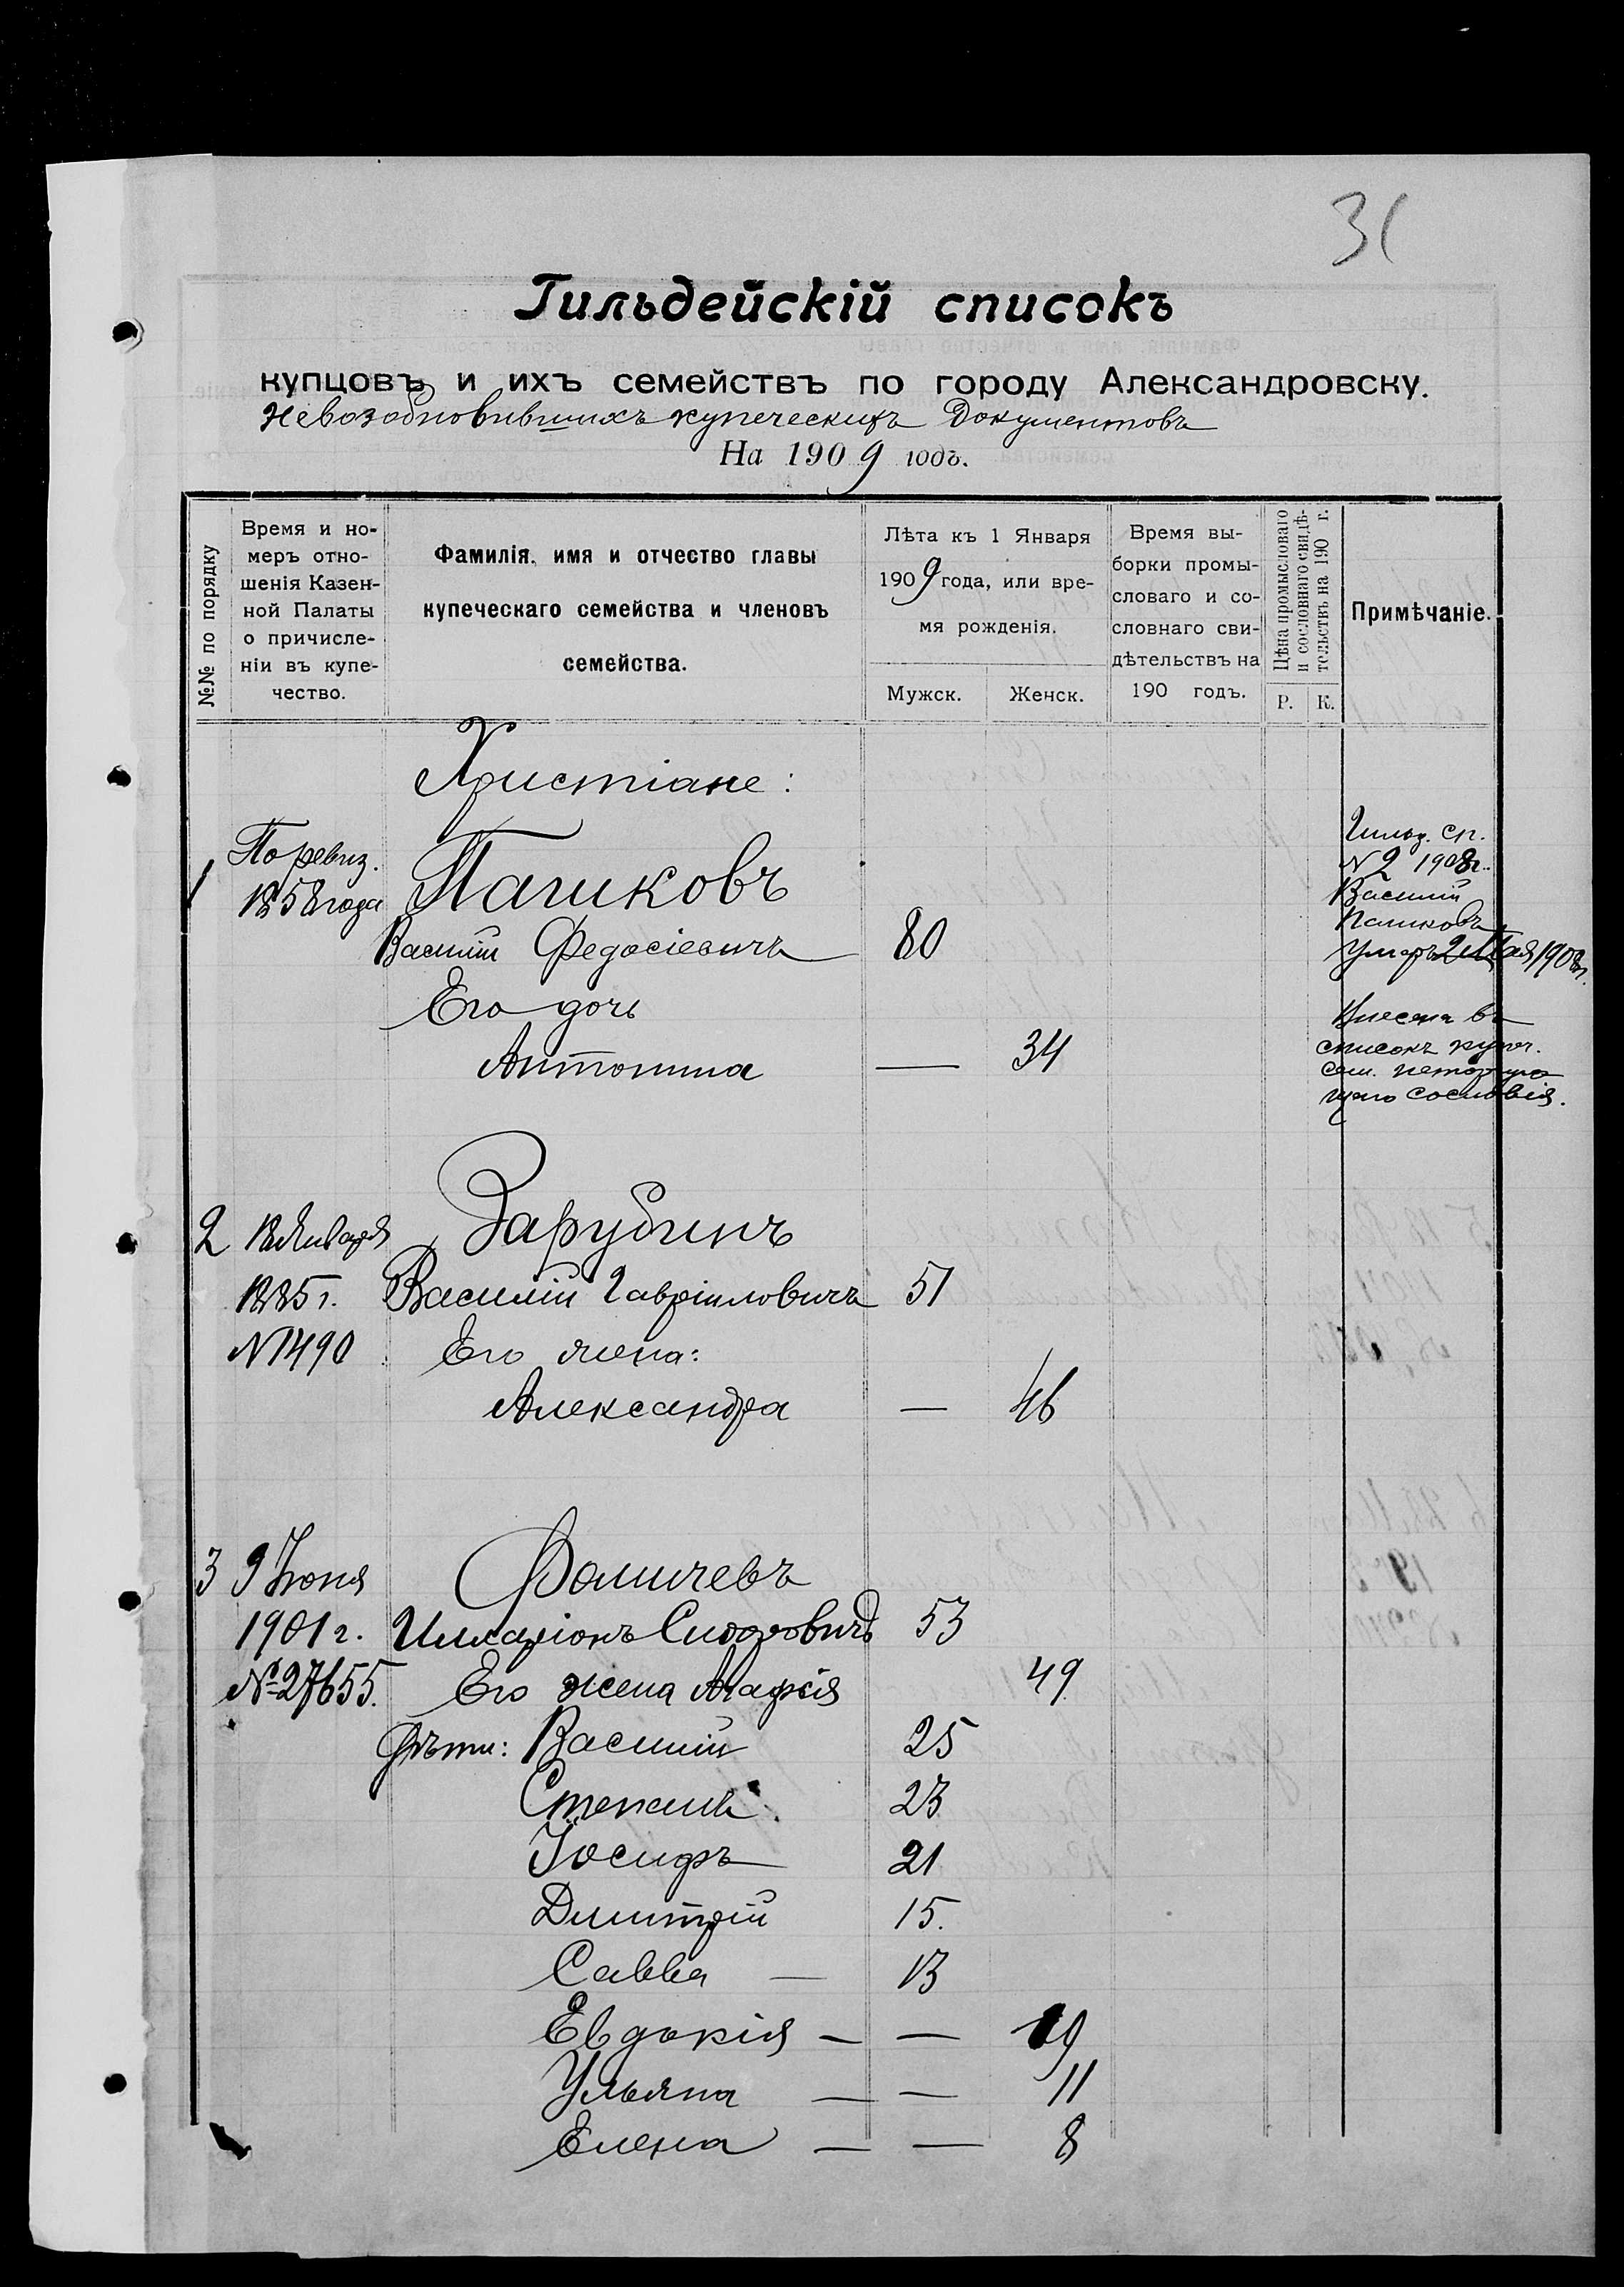 31
Гильдейскій списокъ
купцовъ и ихъ семействъ по городу Александровску.
Невозобновившихъ купеческихъ документовъ
На 1909 годъ.
№№ по порядку
Время и но-
меръ отно-
шенія Казен-
ной Палаты
о причисле-
ніи въ купе-
чество.
Фамилія, имя и отчество главы
купеческаго семейства и членовъ
семейства.
Лѣта къ 1 Января
1909 года, или вре-
мя рожденія.
Мужск. Женск.
Время вы-
борки промы-
словаго и со-
словнаго сви-
дѣтельствъ на
190 годъ.
Цѣна промысловаго
и сословнаго свидѣ-
тельствъ на 190 г.
Р. К.
Примѣчаніе.
Христіане:
1 По ревиз.
1858 года
Пашковъ
Василій Федосіевичъ 80
Его дочь
Антонина — 34
Гильд. сп.
N 2 1908 г.
Василій
Пашковъ
умеръ 2 Мая 1908 г.
Внесена въ
списокъ купеч.
сем. неторгую
щаго сословія.
2 18 Января
1885 г.
N 1490
Зарубинъ
Василій Гавріиловичъ 51
Его жена:
Александра — 46
3 9 Іюня
1901 г.
№ 27655.
Фомичевъ
Илларіонъ 53
Его жена Агафія 49
Дѣти: Василій 25
Степанъ 23
Іосифъ 21
Димитрій 15.
Савва — 13
Евдокія — — 19
Ульяна — — 11
Елена — — 8